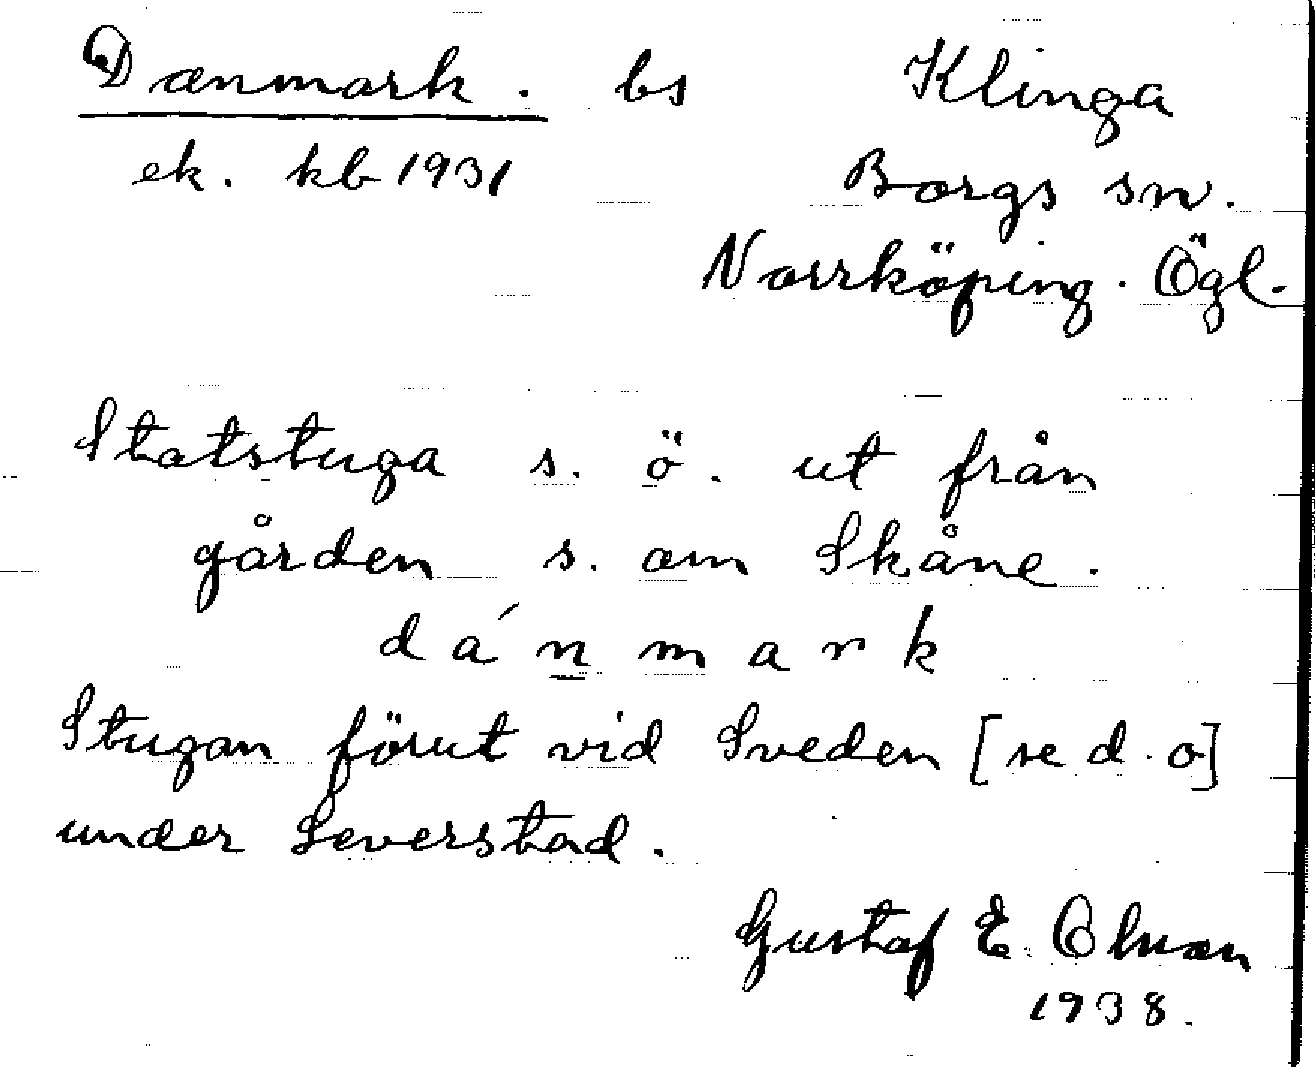 Danmark. bs Klinga
ek. kb 1931 Borgs sn.
Norrköping. Ögl.
Statstuga s. ö. ut från
gården s. om Skåne.
dánmark
Stugan förut vid Sveden [se d. o]
under Leverstad.
Gustaf E. Olsson
1938.